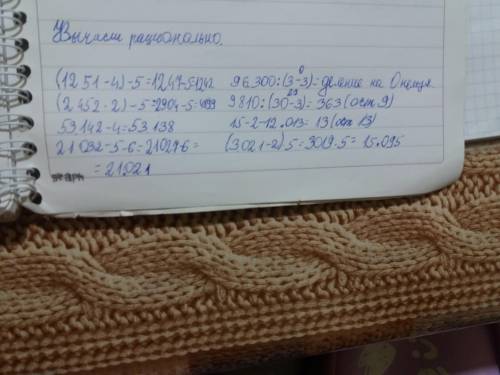 Вычисли рационально.
(1251-4)-5=1247-5=1242 96300:(3-3)=деление на 0 нельзя.
0
(2452·2)-5=2904-5=4899 9810:(30-3)=363(ост 9)
53142-4=53.138 15-2-12.013=13(ост 13)
21032-5-6=21027-6= (3021-2)5=3019·5=15.095
=21.021